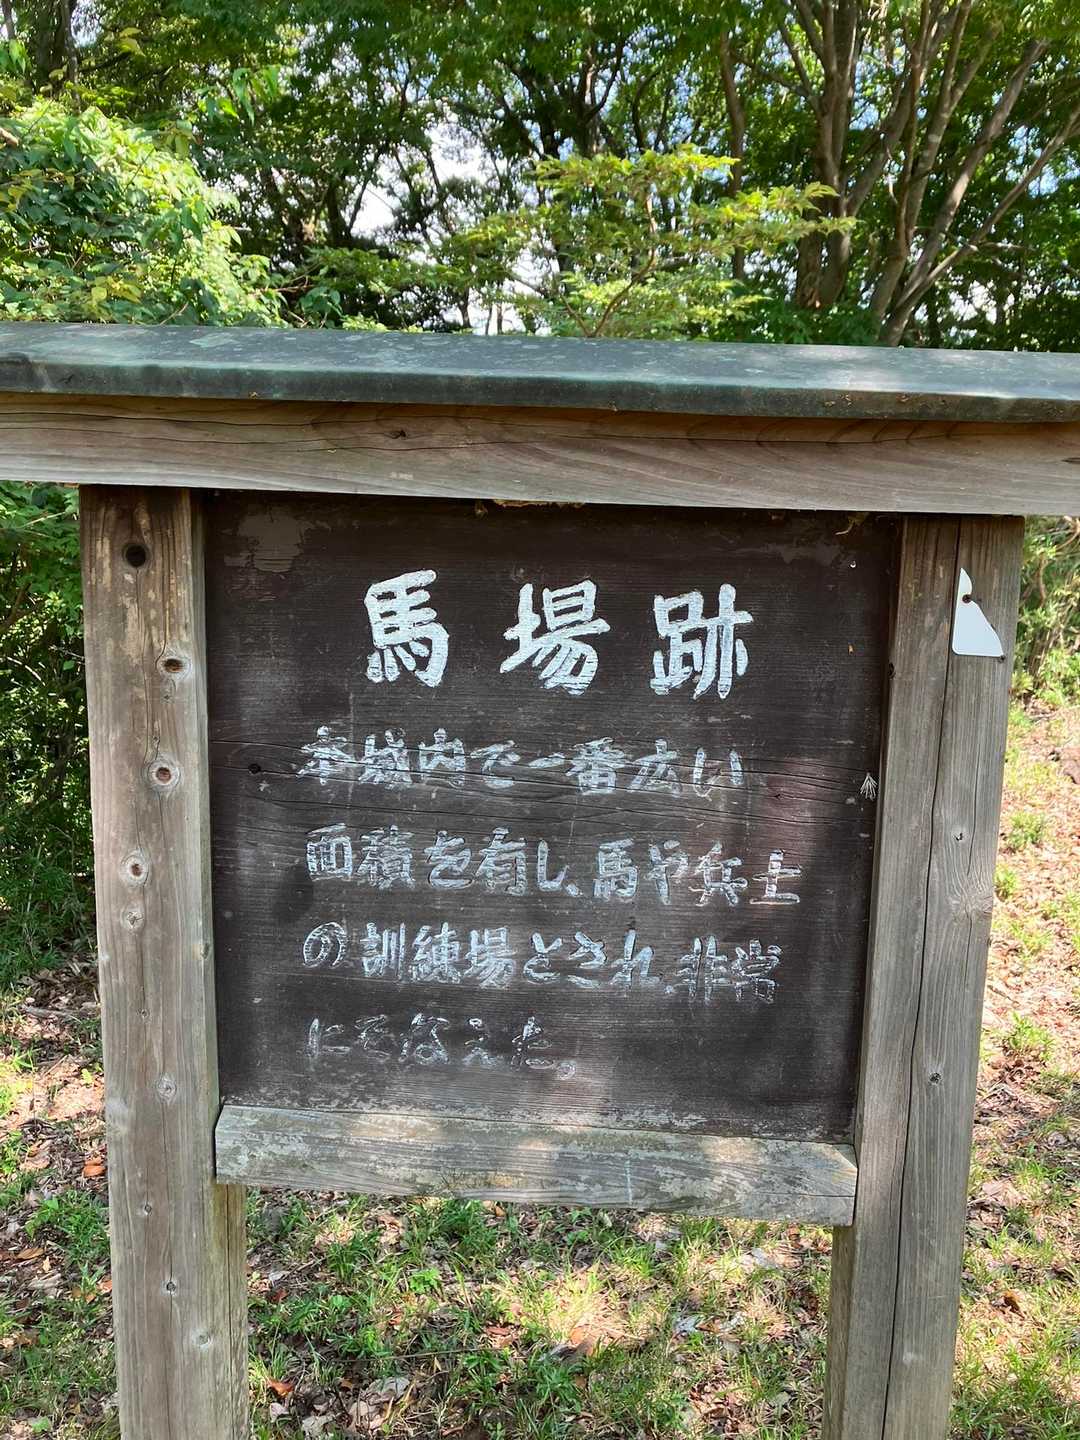 馬場跡
本城内で一番広い
面積を有し、馬や兵士
の訓練場とされ、非常
にそなえた。